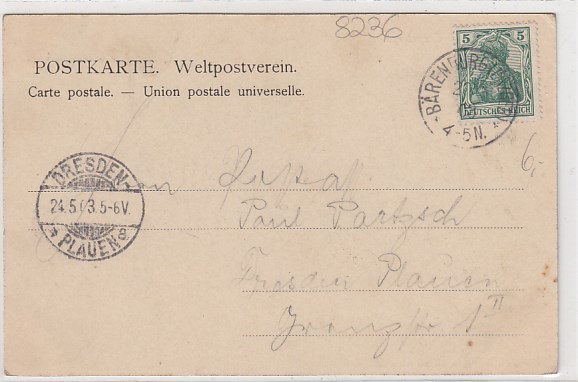 8236
5 5
DEUTSCHES REICH
BÄRENBURG
4-5N.
POSTKARTE. Weltpostverein.
Carte postale. — Union postale universelle.
6,-
DRESDEN-
24.5.03.5-6V.
PLAUEN
Paul Partzsch
Dresden Plauen
1 II